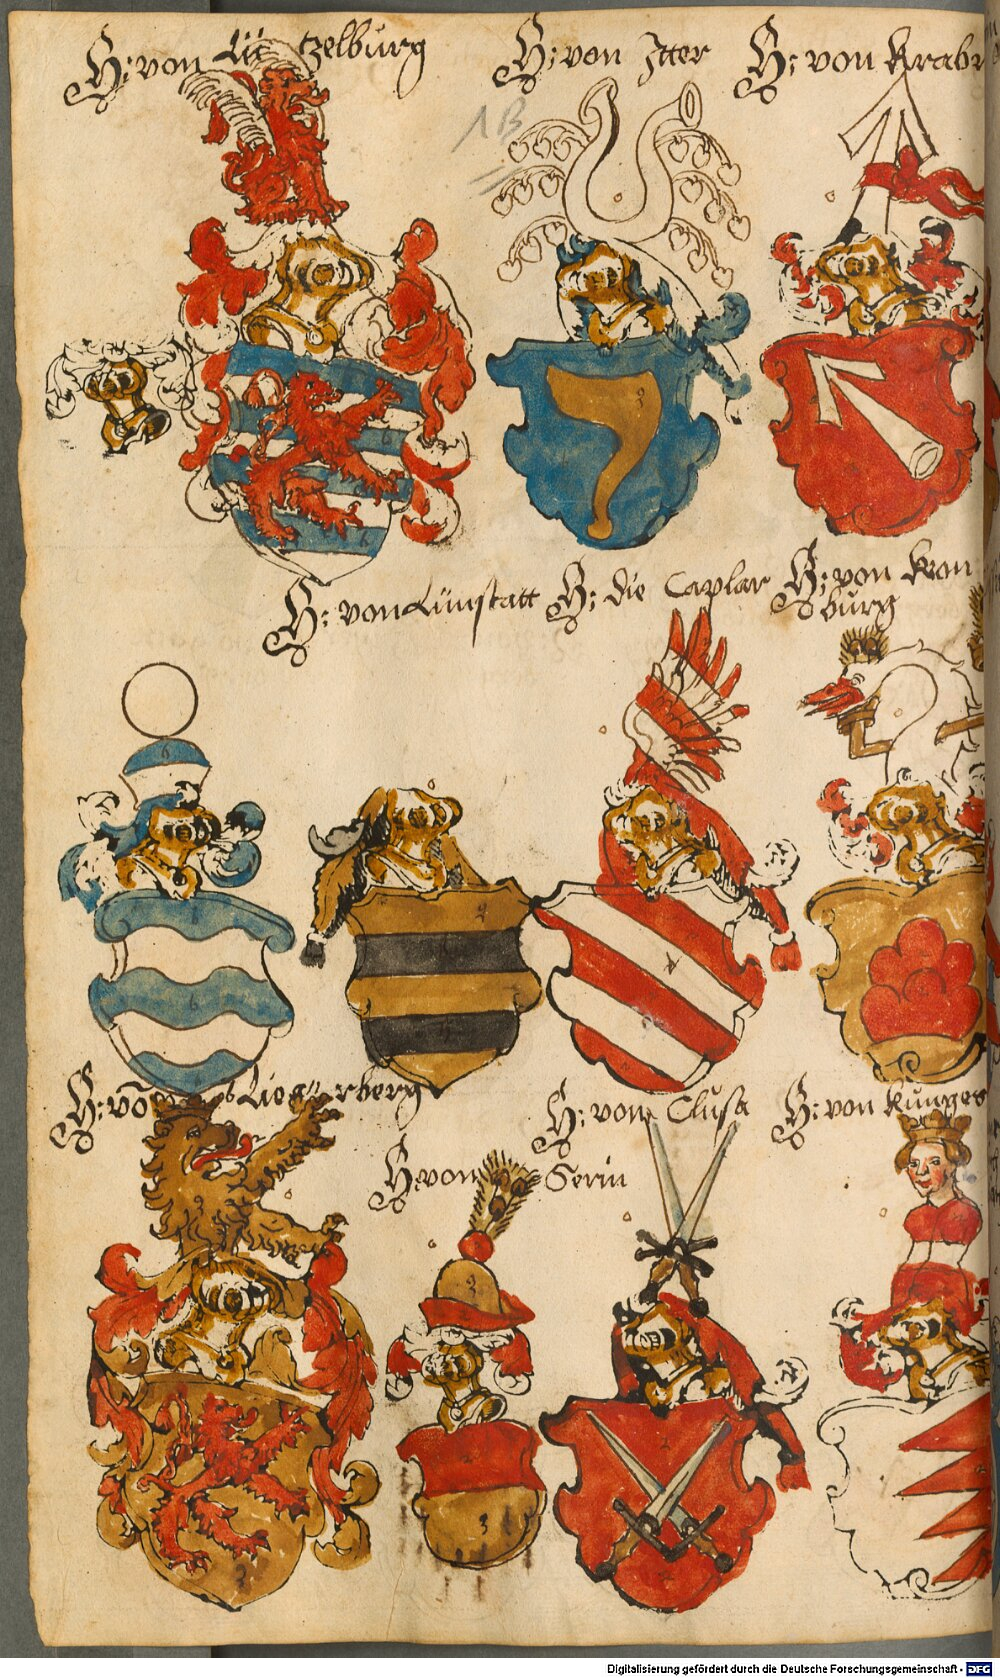 H: von Lützelburg
H: von Itter
H: von Krabr
1B
H: von Lünstatt
H: die Caplar
H: von Kron
burg
H: võ
H: von Clusa
H: von Kunges
H: von Serin
Digitalisierung gefördert durch die Deutsche Forschungsgemeinschaft - DFG